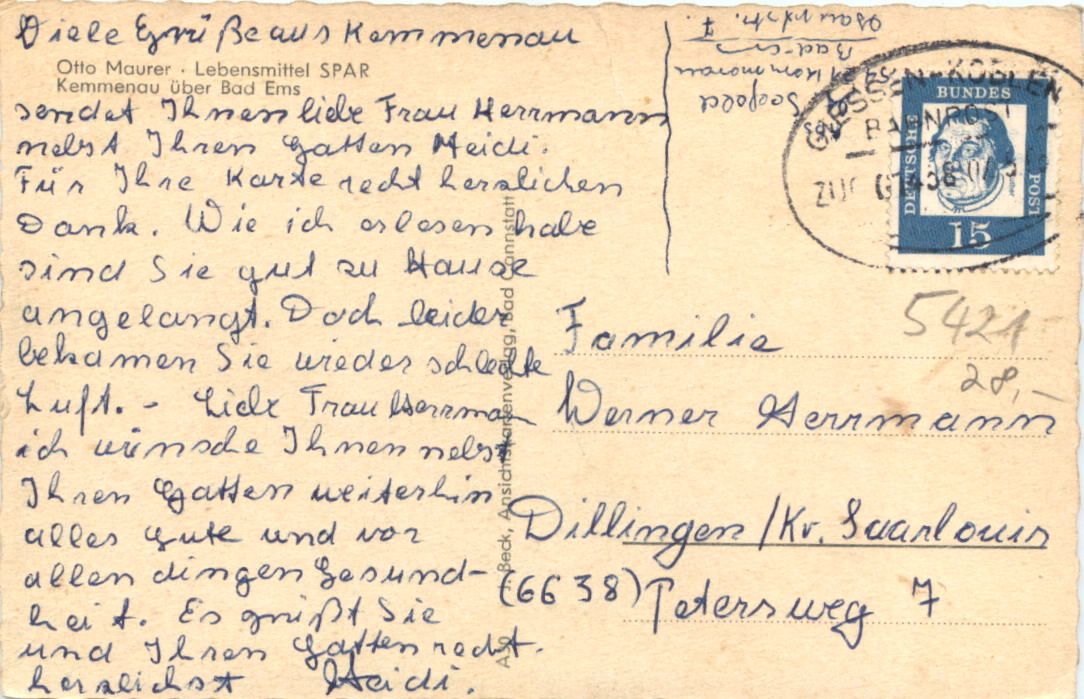 Viele Grüße aus Kemmenau
Otto Maurer · Lebensmittel SPAR
Kemmenau über Bad Ems
sendet Ihnen liebe Frau Herrmann
nebst Ihren Gatten Heidi.
Für Ihre Karte recht herzlichen
Dank. Wie ich erlesen habe
sind Sie gut zu Hause
angelangt. Doch leider
bekamen Sie wieder schlechte
Luft. - Liebe Frau Herrmann
ich wünsche Ihnen nebst
Ihren Gatten weiterhin
alles gute und vor
allen dingen Gesund-
heit. Es grüßt Sie
und Ihren Gatten recht.
herzlichst Heidi.
Beck, Ansichtskartenverlag, Bad Cannstatt
Kemmenau
Bad-Ems
Hauptstr. 7.
GIESSEN-KOBLEN
BAHNPOST
ZUG
DEUTSCHE
BUNDES
POST
15
5421
28,-
Familie
Werner Herrmann
Dillingen/Kr. Saarlouis
(6638) Petersweg 7